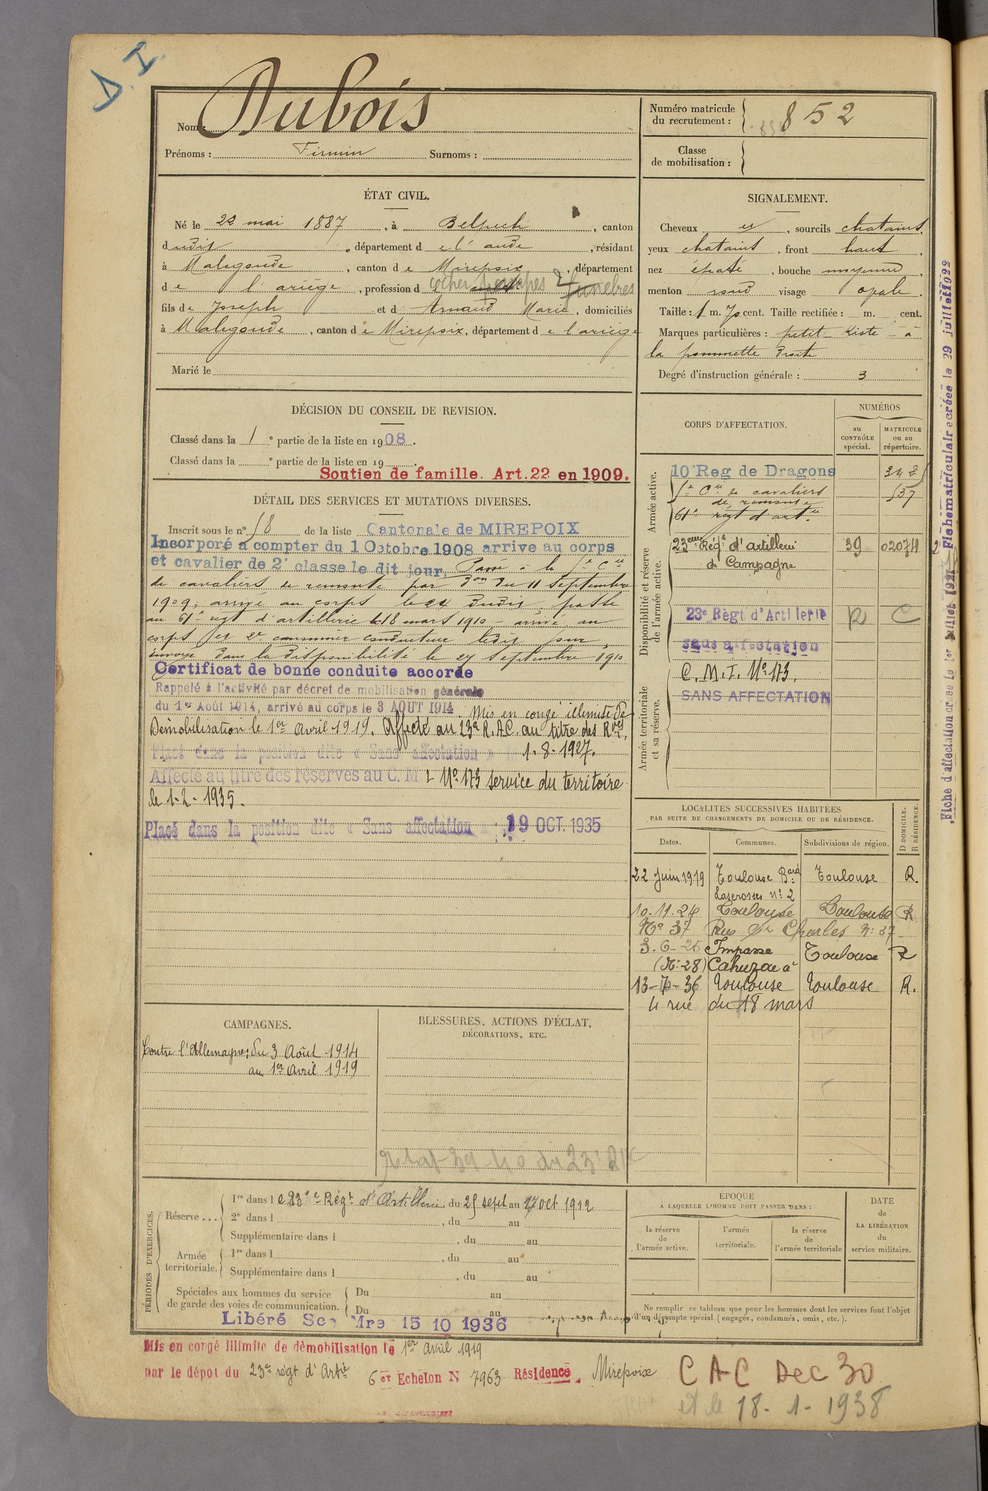 D. I.
Nom : Dubois
Prénoms : Firmin Surnoms :
Numéro matricule du recrutement : 852
Classe de mobilisation :
ÉTAT CIVIL.
Né le 22 mai 1887, à Belpech, canton
dudit, département de l'aude, résidant
à Malegoude, canton de Mirepoix, département
de l'ariège, profession d cocher pompes funèbres
fils de Joseph et d Arnaud Marie, domiciliés
à Malegoude, canton de Mirepoix, département de l'ariège
Marié le
SIGNALEMENT.
Cheveux et, sourcils chatains,
yeux chatains, front haut,
nez épaté, bouche moyenne,
menton rond visage ovale.
Taille : 1 m. 70 cent. Taille rectifiée : m. cent.
Marques particulières : petit kiste à
la pommette droite
Degré d'instruction générale : 3
DÉCISION DU CONSEIL DE REVISION.
Classé dans la 1e partie de la liste en 1908.
Classé dans la e partie de la liste en 19 .
Soutien de famille. Art. 22 en 1909.
DÉTAIL DES SERVICES ET MUTATIONS DIVERSES.
Inscrit sous le n° 18 de la liste Cantonale de MIREPOIX
Incorporé à compter du 1 Octobre 1908 arrive au corps
et cavalier de 2e classe le dit jour, Passé à la 1e Cie
de cavaliers de remonte par Don du 11 Septembre
1909, arrivé au corps le 24 dudit, passé
au 61e régt d'artillerie le 18 mars 1910 - arrivé au
corps et 2e canonnier conducteur ledit jour
envoyé dans la disponibilité le 27 Septembre 1910
Certificat de bonne conduite accordé
Rappelé à l'activité par décret de mobilisation générale
du 1er Août 1914, arrivé au corps le 3 AOUT 1914. Mis en congé illimité de
Démobilisation le 1er Avril 1919. Affecté au 23e R.A.C. au titre des Rves.
Placé dans la position dite « Sans affectation » 1-8-1927.
Affecté au titre des réserves au C. M. I N° 173 service du territoire
le 1-2-1935.
Placé dans la position dite « Sans affectation » 19 OCT. 1935
CORPS D'AFFECTATION.
NUMÉROS
au CONTRÔLE spécial.
MATRICULE ou au répertoire.
Armée active.
10e Reg de Dragons 342
1e Cie de cavaliers de remonte 157
61e régt d'artie
Disponibilité et réserve de l'armée active.
23eme Régt d'artillerie de Campagne 39 02074
23e Règt d'Artillerie R C
sans affectation
Armée territoriale et sa réserve.
C.M.I. N° 173.
SANS AFFECTATION
Fiche d'affectation créée le 1er juillet 192
Fiche matriculaire créée le 29 juillet 1922
LOCALITÉS SUCCESSIVES HABITÉES
PAR SUITE DE CHANGEMENTS DE DOMICILE OU DE RÉSIDENCE.
Dates. Communes. Subdivisions de région. D DOMICILE. R RÉSIDENCE.
22 Juin 1919 Toulouse Bard Lascrosses N° 2 Toulouse R.
10.11.24 Toulouse Toulouse R
N° 37 Rue St Charles N° 37
3-6-26 Impasse Toulouse R
(N° 28) Cahuzac à
13-7-36 Toulouse Toulouse R.
4 rue du 18 mars
CAMPAGNES.
Contre l'Allemagne : du 3 Août 1914
au 1er Avril 1919
BLESSURES, ACTIONS D'ÉCLAT,
DÉCORATIONS, ETC.
PÉRIODES D'EXERCICES.
Réserve ... 1re dans le 23e Régt d'Artillerie, du 25 sept au 17 oct 1912
2e dans l , du au
Supplémentaire dans l , du au
Armée territoriale. 1re dans l , du au
Supplémentaire dans l , du au
Spéciales aux hommes du service de garde des voies de communication. Du au
Du au
Libéré Sce Mre 15 10 1936
EPOQUE
A LAQUELLE L'HOMME DOIT PASSER DANS :
la réserve de l'armée active.
l'armée territoriale.
la réserve de l'armée territoriale
DATE DE LA LIBÉRATION du service militaire.
Ne remplir ce tableau que pour les hommes dont les services font l'objet
d'un décompte spécial (engagés, condamnés, omis, etc.).
Mis en congé illimité de démobilisation le 1er avril 1919
par le dépot du 23e régt d'Artie 6 et Echelon N 7963 Résidence Mirepoix
CAC Dec 30
et le 18-1-1938